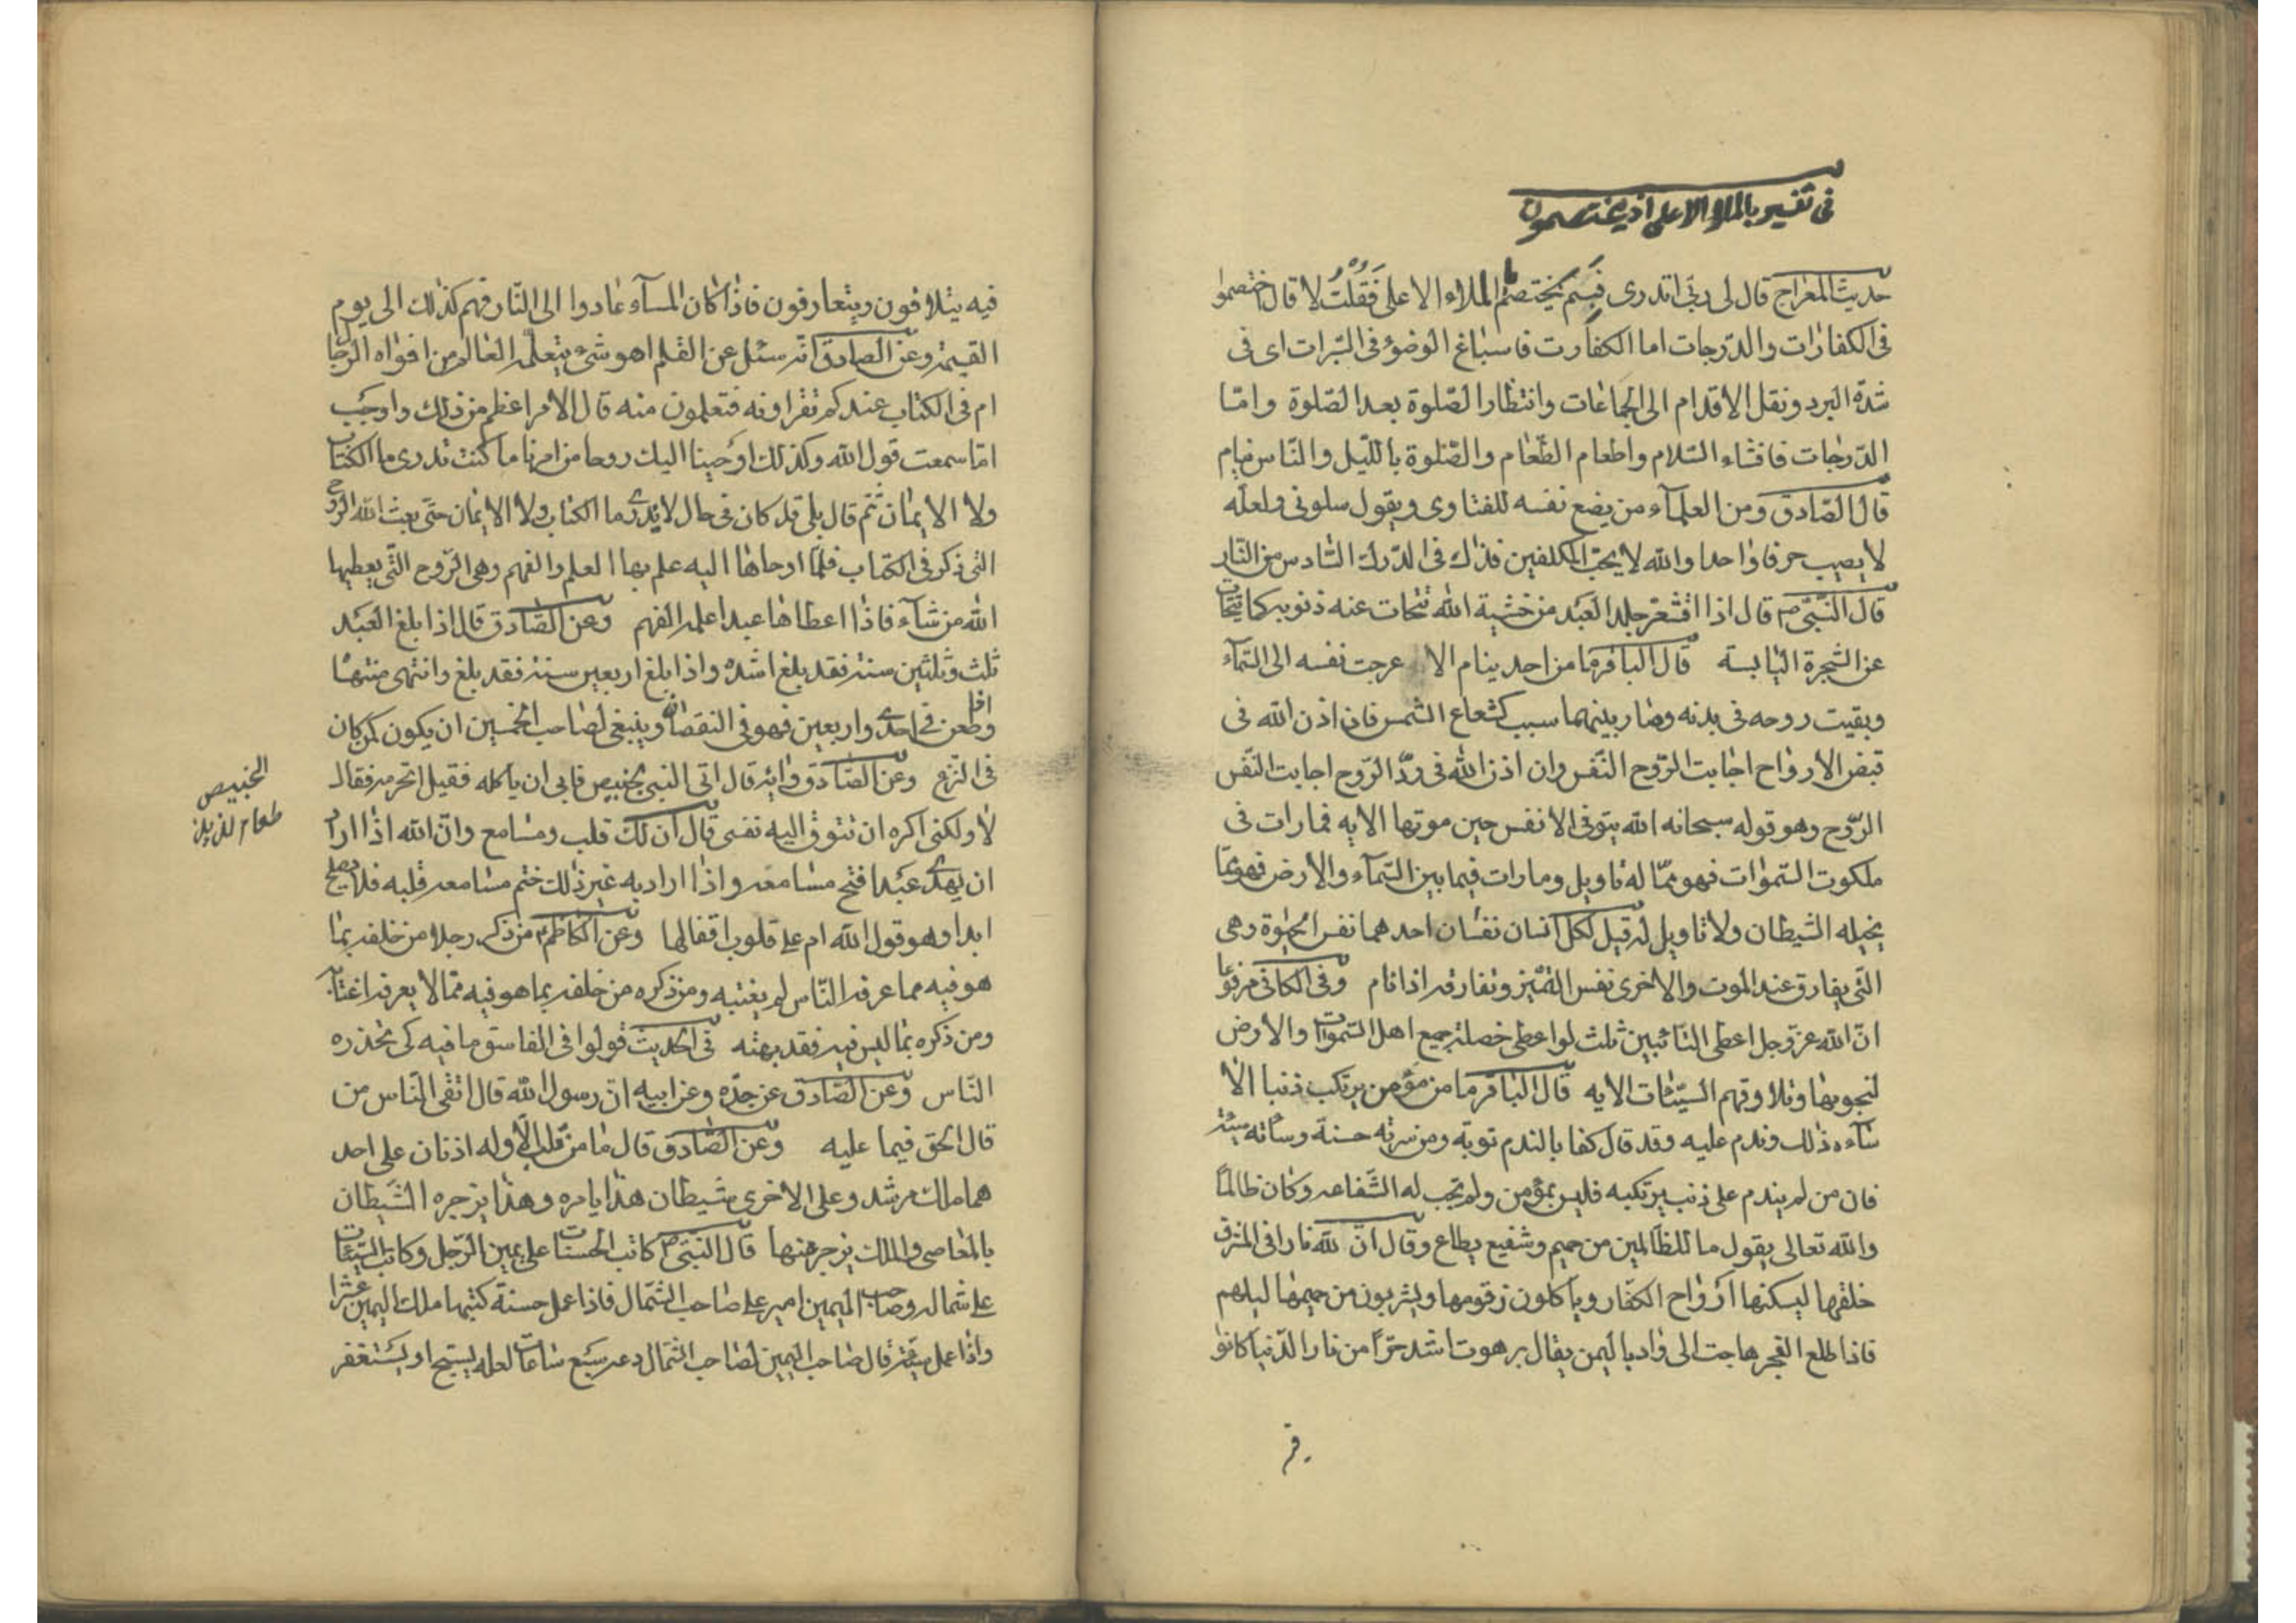 فى تفسير بالملاء الاعلى اذ يختصمون
حديث المعراج قال لى ربى اتدرى فيم يختصم الملاء الاعلى فقلت لا قال اختصموا
فى الكفارات والدرجات اما الكفارت فاسباغ الوضؤ فى السبرات اى فى
شدة البرد ونقل الاقدام الى الجماعات وانتظار الصلوة بعد الصلوة واما
الدرجات فافشاء السلام واطعام الطعام والصلوة بالليل والناس نيام
قال الصادق ومن العلمآء من يضع نفسه للفتاوى ويقول سلونى ولعله
لا يصيب حرفا واحدا والله لا يحب المتكلفين فذاك فى الدرك السادس من النار
قال النبى ص قال اذا اقشعر جلد العبد من خشية الله تتحات عنه ذنوبه كما يتحات
عن الشجرة اليابسة قال الباقر ما من احد ينام الا عرجت نفسه الى السمآء
وبقيت روحه فى بدنه وصار بينهما سبب كشعاع الشمس فان اذن الله فى
قبض الارواح اجابت الروح النفس وان اذن الله فى رد الروح اجابت النفس
الروح وهو قوله سبحانه الله يتوفى الانفس حين موتها الايه فمارات فى
ملكوت السموات فهو مما له تاويل ومارات فيما بين السمآء والارض فهو مما
يخيله الشيطان ولا تاويل له قيل لكل انسان نفسان احدهما نفس الحيوة وهى
التى يفارق عند الموت والاخرى نفس التميز وتفارقه اذا نام وفى الكافى مرفوعا
ان الله عز وجل اعطى التائبين ثلث لو اعطى خصلة جميع اهل السموات والارض
لنجوبها وتلا وقهم السيئات الايه قال الباقر ما من مؤمن يرتكب ذنبا الا
سآءه ذلك وندم عليه وقد قال كفا بالندم توبة ومن سرته حسنة وساته سيئة
فان من لم يندم على ذنب يرتكبه فليس بمؤمن ولم تجب له الشفاعه وكان ظالما
والله تعالى يقول ما للظالمين من حميم وشفيع يطاع وقال ان لله نارا فى المشرق
خلقها ليسكنها ارواح الكفار وياكلون زقومها ويشربون من حميمها ليلهم
فاذا طلع الفجر هاجت الى واد باليمن يقال برهوت اشد حرا من نار الدنيا كانوا
فيه يتلاقون ويتعارفون فاذا كان المسآء عادوا الى النار فهم كذلك الى يوم
القيمة وعن الصادق انه سئل عن العلم اهو شئ يتعلمه العالم من افواه الرجال
ام فى الكتاب عندكم تقراونه فتعلمون منه قال الامر اعظم من ذلك واوجب
اما سمعت قول الله وكذلك اوحينا اليك روحا من امرنا ما كنت تدرى ما الكتاب
ولا الايمان ثم قال بلى قد كان فى حال لا يدرى ما الكتاب ولا الايمان حتى بعث الله الروح
التى ذكر فى الكتاب فلما اوحاها اليه علم بها العلم والفهم وهى الروح التى يعطيها
الله من شآء فاذا اعطاها عبدا علمه الفهم وعن الصادق قال اذا بلغ العبد
ثلث وثلثين سنة فقد بلغ اشده واذا بلغ اربعين سنة فقد بلغ وانتهى منتهاه
واذا طعن فى احدى واربعين فهو فى النقصان وينبغى لصاحب الخمسين ان يكون كمن كان
فى النزع وعن الصادق قال اتى النبى بخبيص فابى ان ياكله فقيل اتحرمه فقال
لا ولكنى اكره ان تتوق اليه نفسى قال ان لك قلب ومسامع وان الله اذا اراد
ان يهدى عبدا فتح مسامعه واذا اراد به غير ذلك ختم مسامعه قلبه فلا يصلح
ابدا وهو قول الله ام على قلوب اقفالها وعن الكاظم من ذكر رجلا من خلفه بما
هو فيه مما عرفه الناس لم يغتبه ومن ذكره من خلفه بما هو فيه مما لا يعرفه اغتابه
ومن ذكره بما ليس فيه فقد بهته فى الحديث قولوا فى الفاسق ما فيه كى يحذره
الناس وعن الصادق عن جده وعن ابيه ان رسول الله قال اتقى الناس من
قال الحق فيما عليه وعن الصادق قال ما من قلب الا وله اذنان على احد
هما ملك مرشد وعلى الاخرى شيطان هذا يامره وهذا يزجره الشيطان
بالمعاصى والملك يزجره منها قال النبى ص كاتب الحسنات على يمين الرجل وكاتب السيئات
على شماله وصاحب اليمين امير على صاحب الشمال فاذا عمل حسنة كتبها ملك اليمين عشرا
واذا عمل سيئة قال صاحب اليمين لصاحب الشمال دعه سبع ساعات لعله يسبح او يستغفر
الخبيص
طعام لذيذ